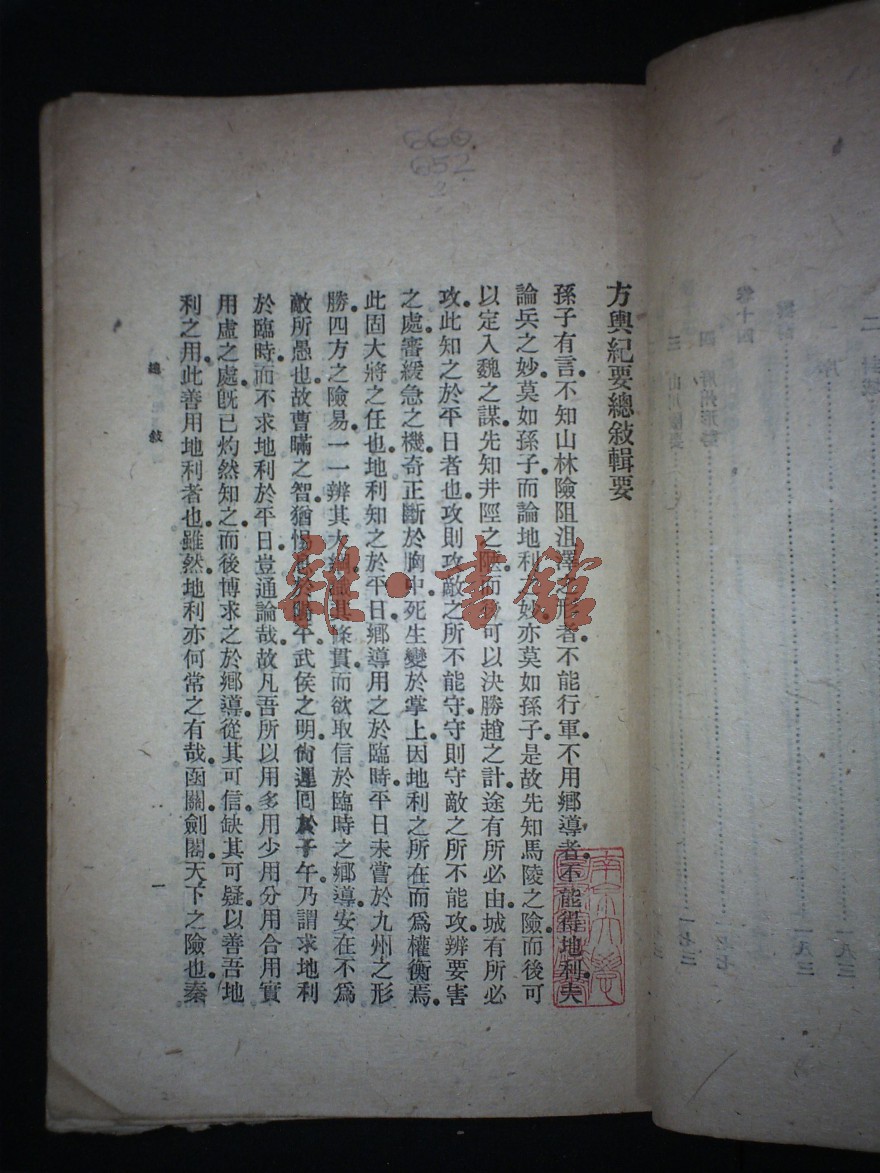 方輿紀要總敘輯要
孫子有言不知山林險阻沮澤之形者不能行軍不用鄉導者不能得地利夫
論兵之妙莫如孫子而論地利之妙亦莫如孫子是故先知馬陵之險而後可
以定入魏之謀先知井陘之而後可以決勝趙之計途有所必由城有所必
攻此知之於平日者也攻則攻敵之所不能守守則守敵之所不能攻辨要害
之處審緩急之機奇正斷於胸中死生變於掌上因地利之所在而為權衡焉
此固大將之任也地利知之於平日鄉導用之於臨時平日未嘗於九州之形
勝四方之險易一一辨其大綱識其條貫而欲取信於臨時之鄉導安在不為
敵所愚也故曹瞞之智猶惕於陽平武侯之明尚遲回於子午乃謂求地利
於臨時而不求地利於平日豈通論哉故凡吾所以用多用少用分用合用實
用虛之處既已灼然知之而後博求之於鄉導從其可信缺其可疑以善吾地
利之用此善用地利者也雖然地利亦何常之有哉函關劍閣天下之險也秦
總敘
一
660
652
3
雜·書館
卷十四
四 府州形勢
三 山川險要
一七三
一七七
一八三